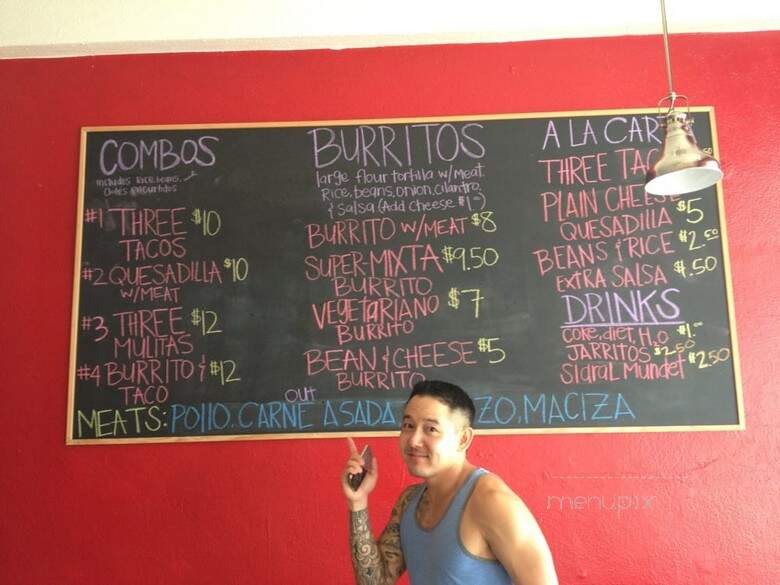 COMBOS
Includes Rice, beans,
#1 THREE $10
TACOS
#2 QUESADILLA $10
W/MEAT
#3 THREE $12
MULITAS
#4 BURRITO & $12
TACO
BURRITOS
large flour tortilla w/meat
Rice, beans, onion, cilantro,
& Salsa (Add Cheese $1.00)
BURRITO W/MEAT $8
SUPER-MIXTA $9.50
BURRITO
VEGETARIANO $7
BURRITO
BEAN & CHEESE $5
BURRITO
A LA CAR
THREE TAC
PLAIN CHEESE $5
QUESADILLA
BEANS & RICE $2.50
EXTRA SALSA $.50
DRINKS
COKE, diet, H2O $1.00
JARRITOS $2.50
Sidral Mundet $2.50
OUT
MEATS: POllO, CARNE ASADA ZO, MACIZA
menupix